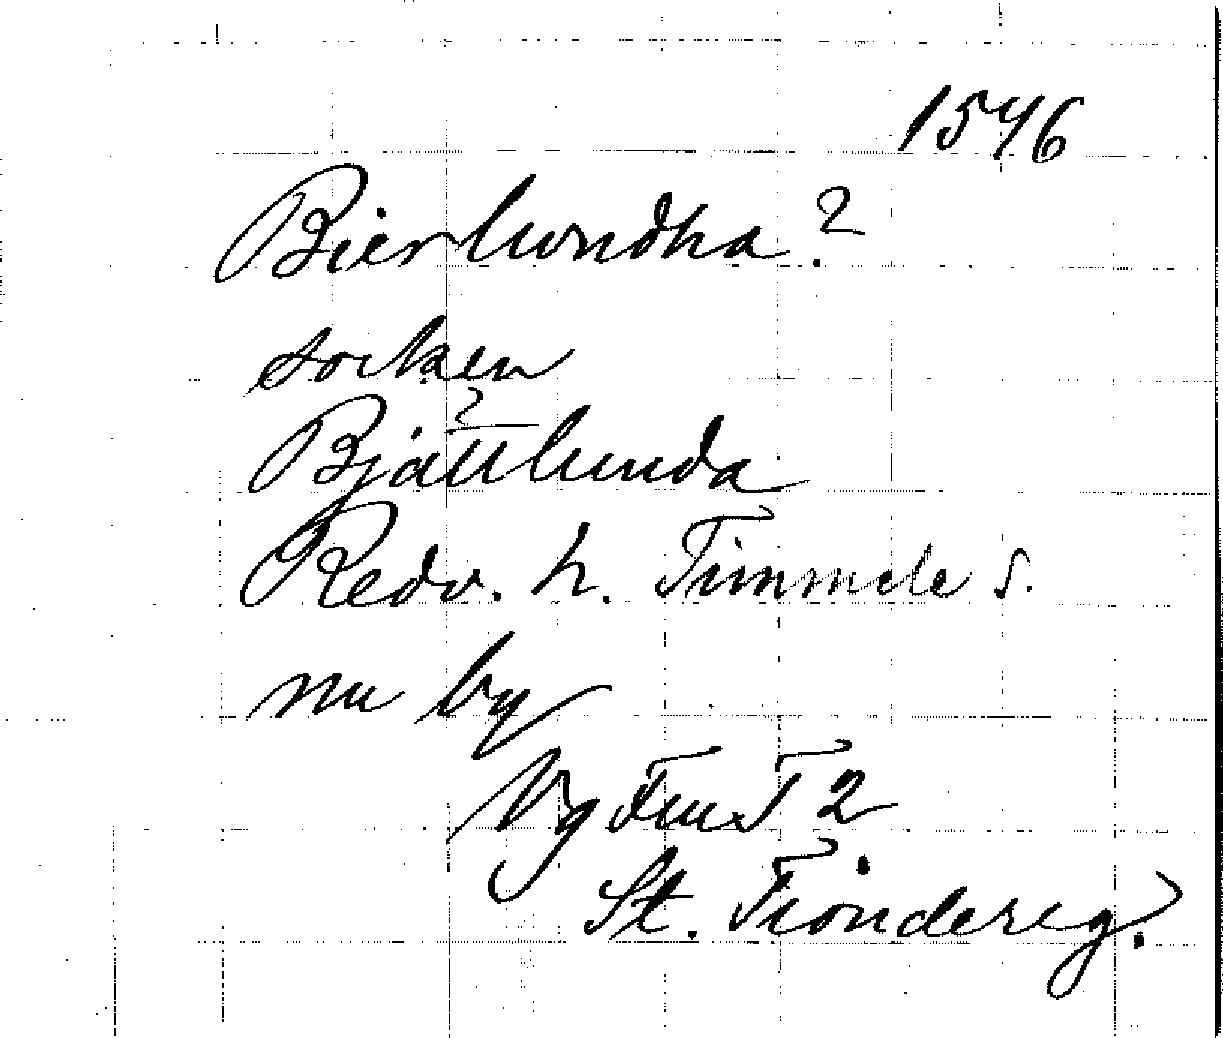 1546
Bierlundha?
socken
?
Bjättlunda
Redv. h. Timmele s.
nu by
Vg
St. Tiondereg.